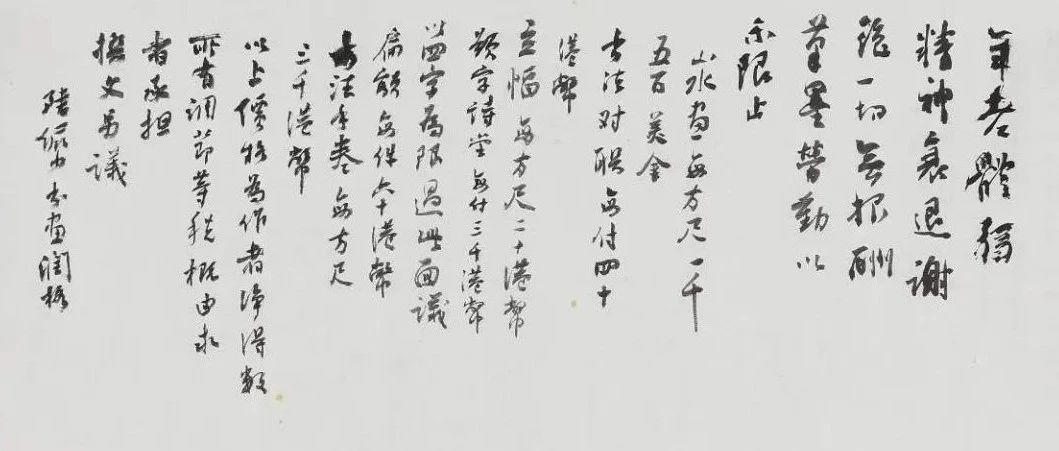 年老體弱
精神衰退謝
絕一切無报酬
筆墨營勤以
示限止
山水畫每方尺一千
五百美金
書法对联每付四十
港幣
立幅每方尺二十港幣
題字詩堂每件三千港幣
以四字為限過此面議
扁額每件六十港幣
書法手卷每方尺
三千港幣
以上價格為作者净得數
所有调节等税概由求
者承担
撰文另議
陸儼少書畫潤格